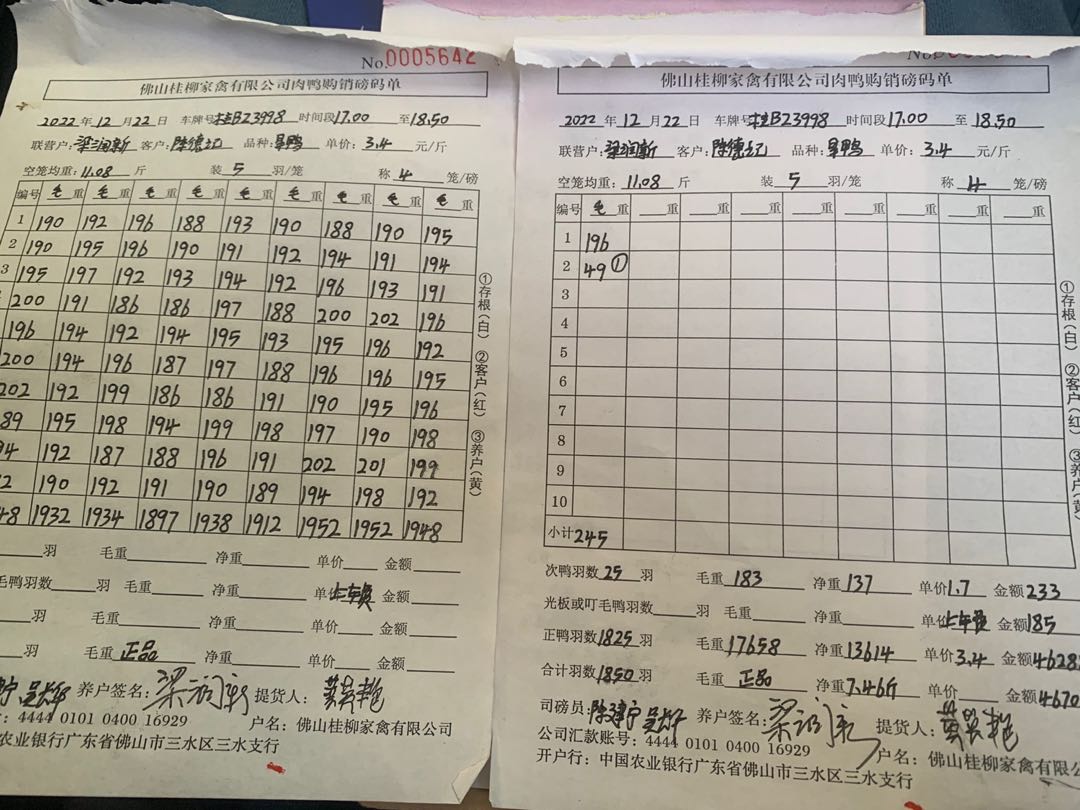 No.0005642
佛山桂柳家禽有限公司肉鸭购销磅码单
2022年12月22日 车牌号桂B23998 时间段17.00至18.50
联营户:梁润新 客户:陈德记 品种: 单价:3.4元/斤
空笼均重:11.08斤 装5羽/笼 称4笼/磅
编号 毛重 毛重 毛重 毛重 毛重 毛重 毛重 毛重 毛重
1 190 192 196 188 193 190 188 190 195
2 190 195 196 190 191 192 194 191 194
3 195 197 192 193 194 192 196 193 191
200 191 186 186 197 188 200 202 196
196 194 192 194 195 193 195 196 192
200 194 196 187 197 188 196 196 195
202 192 199 186 186 191 190 195 196
89 195 198 194 199 198 197 190 198
94 192 187 188 196 191 202 201 199
2 190 192 191 190 189 194 198 192
48 1932 1934 1897 1938 1912 1952 1952 1948
①存根(白) ②客户(红) ③养户(黄)
羽 毛重 净重 单价 金额
毛鸭羽数 羽 毛重 净重 单价 金额
羽 毛重 净重 单价 金额
羽 毛重正品 净重 单价 金额
养户签名:梁润新 提货人:
: 4444 0101 0400 16929 户名:佛山桂柳家禽有限公司
农业银行广东省佛山市三水区三水支行
No.
佛山桂柳家禽有限公司肉鸭购销磅码单
2022年12月22日 车牌号桂B23998 时间段17.00至18.50
联营户:梁润新 客户:陈德记 品种: 单价:3.4元/斤
空笼均重:11.08斤 装5羽/笼 称4笼/磅
编号 毛重 重 重 重 重 重 重 重 重
1 196
2 49①
3
4
5
6
7
8
9
10
小计 245
①存根(白) ②客户(红) ③养户(黄)
次鸭羽数25羽 毛重183 净重137 单价1.7 金额233
光板或叮毛鸭羽数 羽 毛重 净重 单价 金额185
正鸭羽数1825羽 毛重17658 净重13614 单价3.4 金额4628
合计羽数1850羽 毛重正品 净重7.46斤 单价 金额4670
司磅员:陈建宁 养户签名:梁润新 提货人:
公司汇款账号:4444 0101 0400 16929 户名:佛山桂柳家禽有限公
开户行:中国农业银行广东省佛山市三水区三水支行